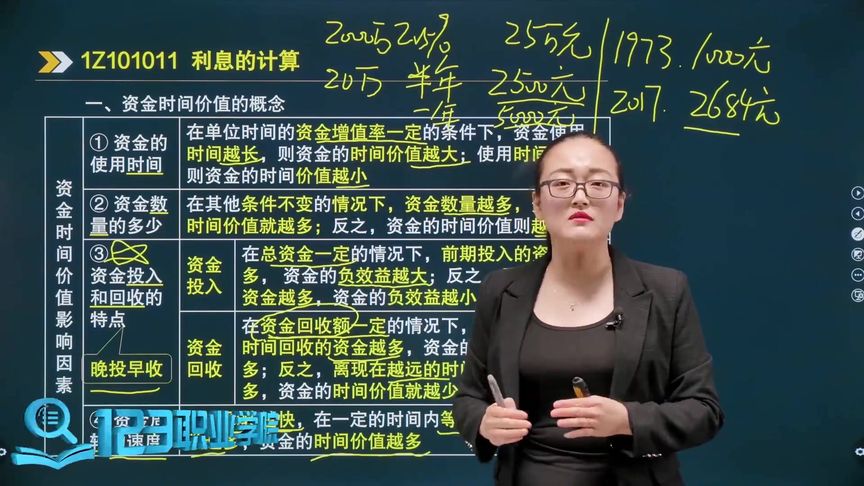 2000万 2.5% 25万元
20万 半年 2500元
一年 5000元
1973. 1000元
2017. 2684元
1Z101011 利息的计算
一、资金时间价值的概念
资金时间价值影响因素
① 资金的
使用时间
在单位时间的资金增值率一定的条件下，资金使用
时间越长，则资金的时间价值越大；使用时间
则资金的时间价值越小
② 资金数
量的多少
在其他条件不变的情况下，资金数量越多，
时间价值就越多；反之，资金的时间价值则越
③
资金投入
和回收的
特点
晚投早收
资金
投入
在总资金一定的情况下，前期投入的资
多， 资金的负效益越大；反之
资金越多，资金的负效益越小
资金
回收
在资金回收额一定的情况下，
时间回收的资金越多，资金的
多；反之，离现在越远的时间
多，资金的时间价值就越少
速度
快，在一定的时间内等
资金的时间价值越多
123职业学院